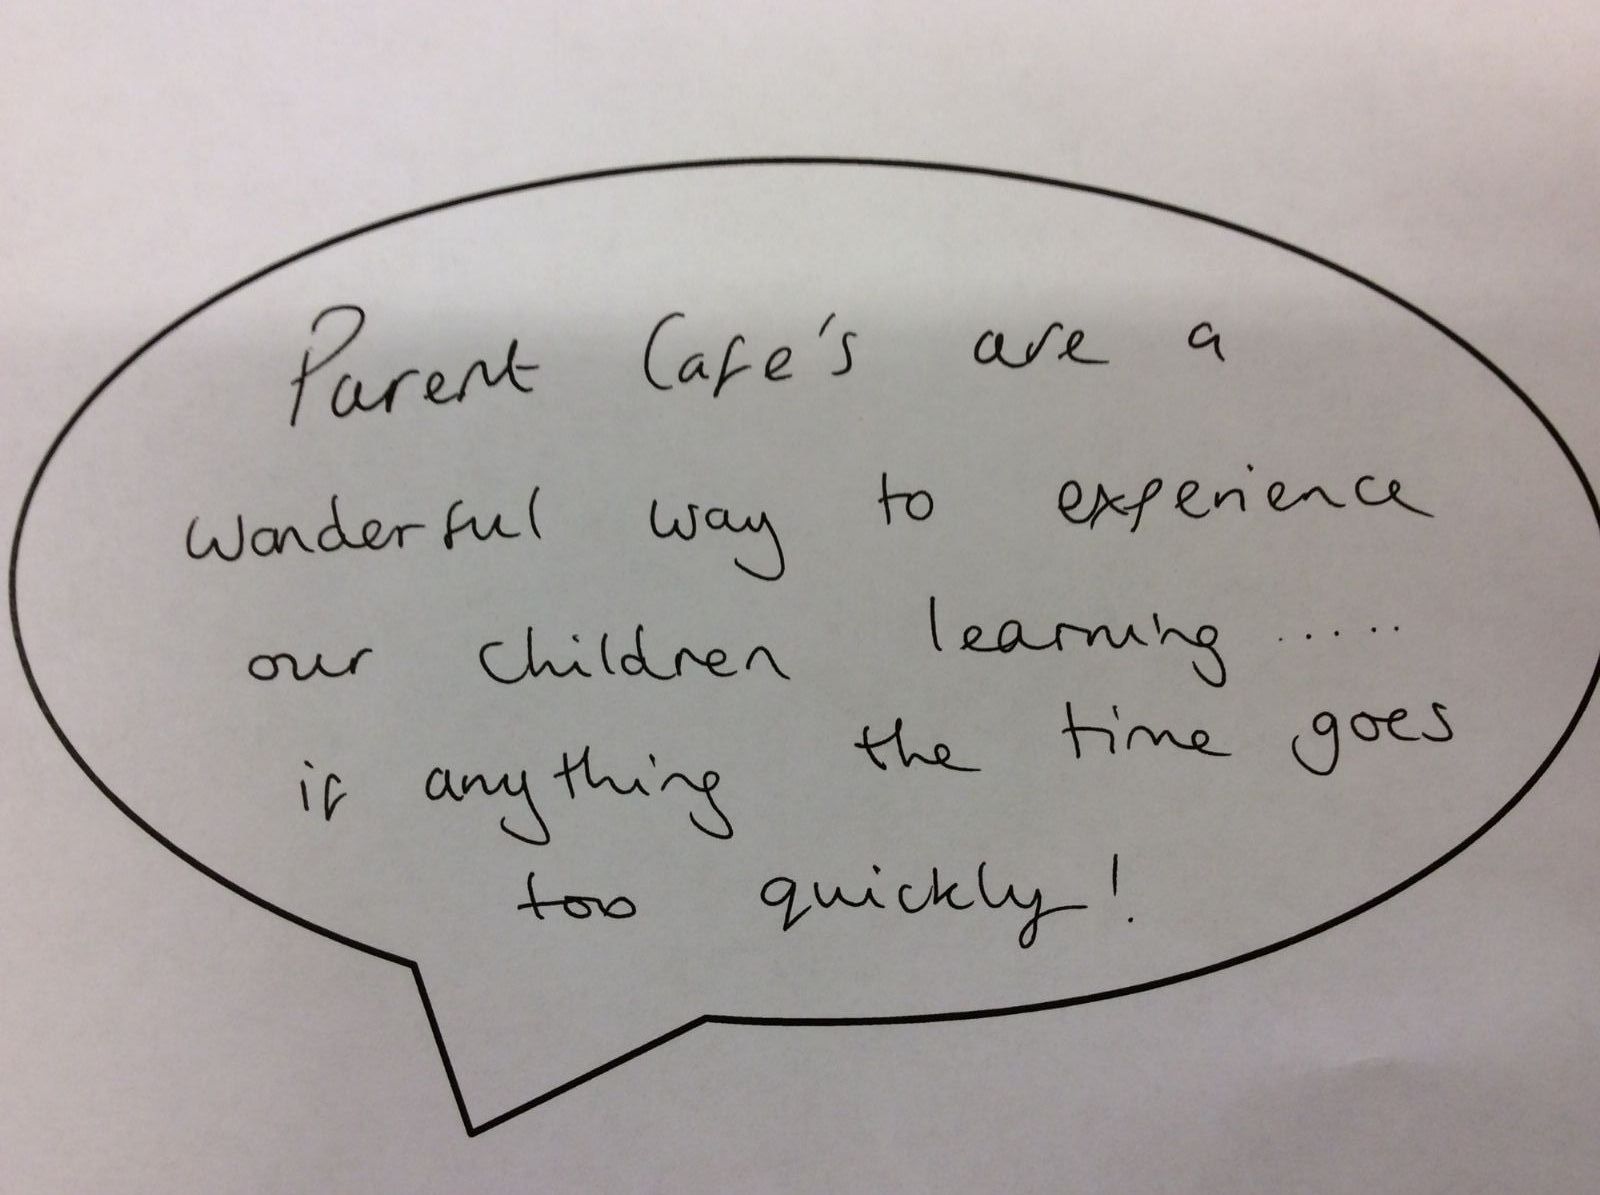 Parent Cafe's are a
wonderful way to experience
our children learning .....
if anything the time goes
too quickly!